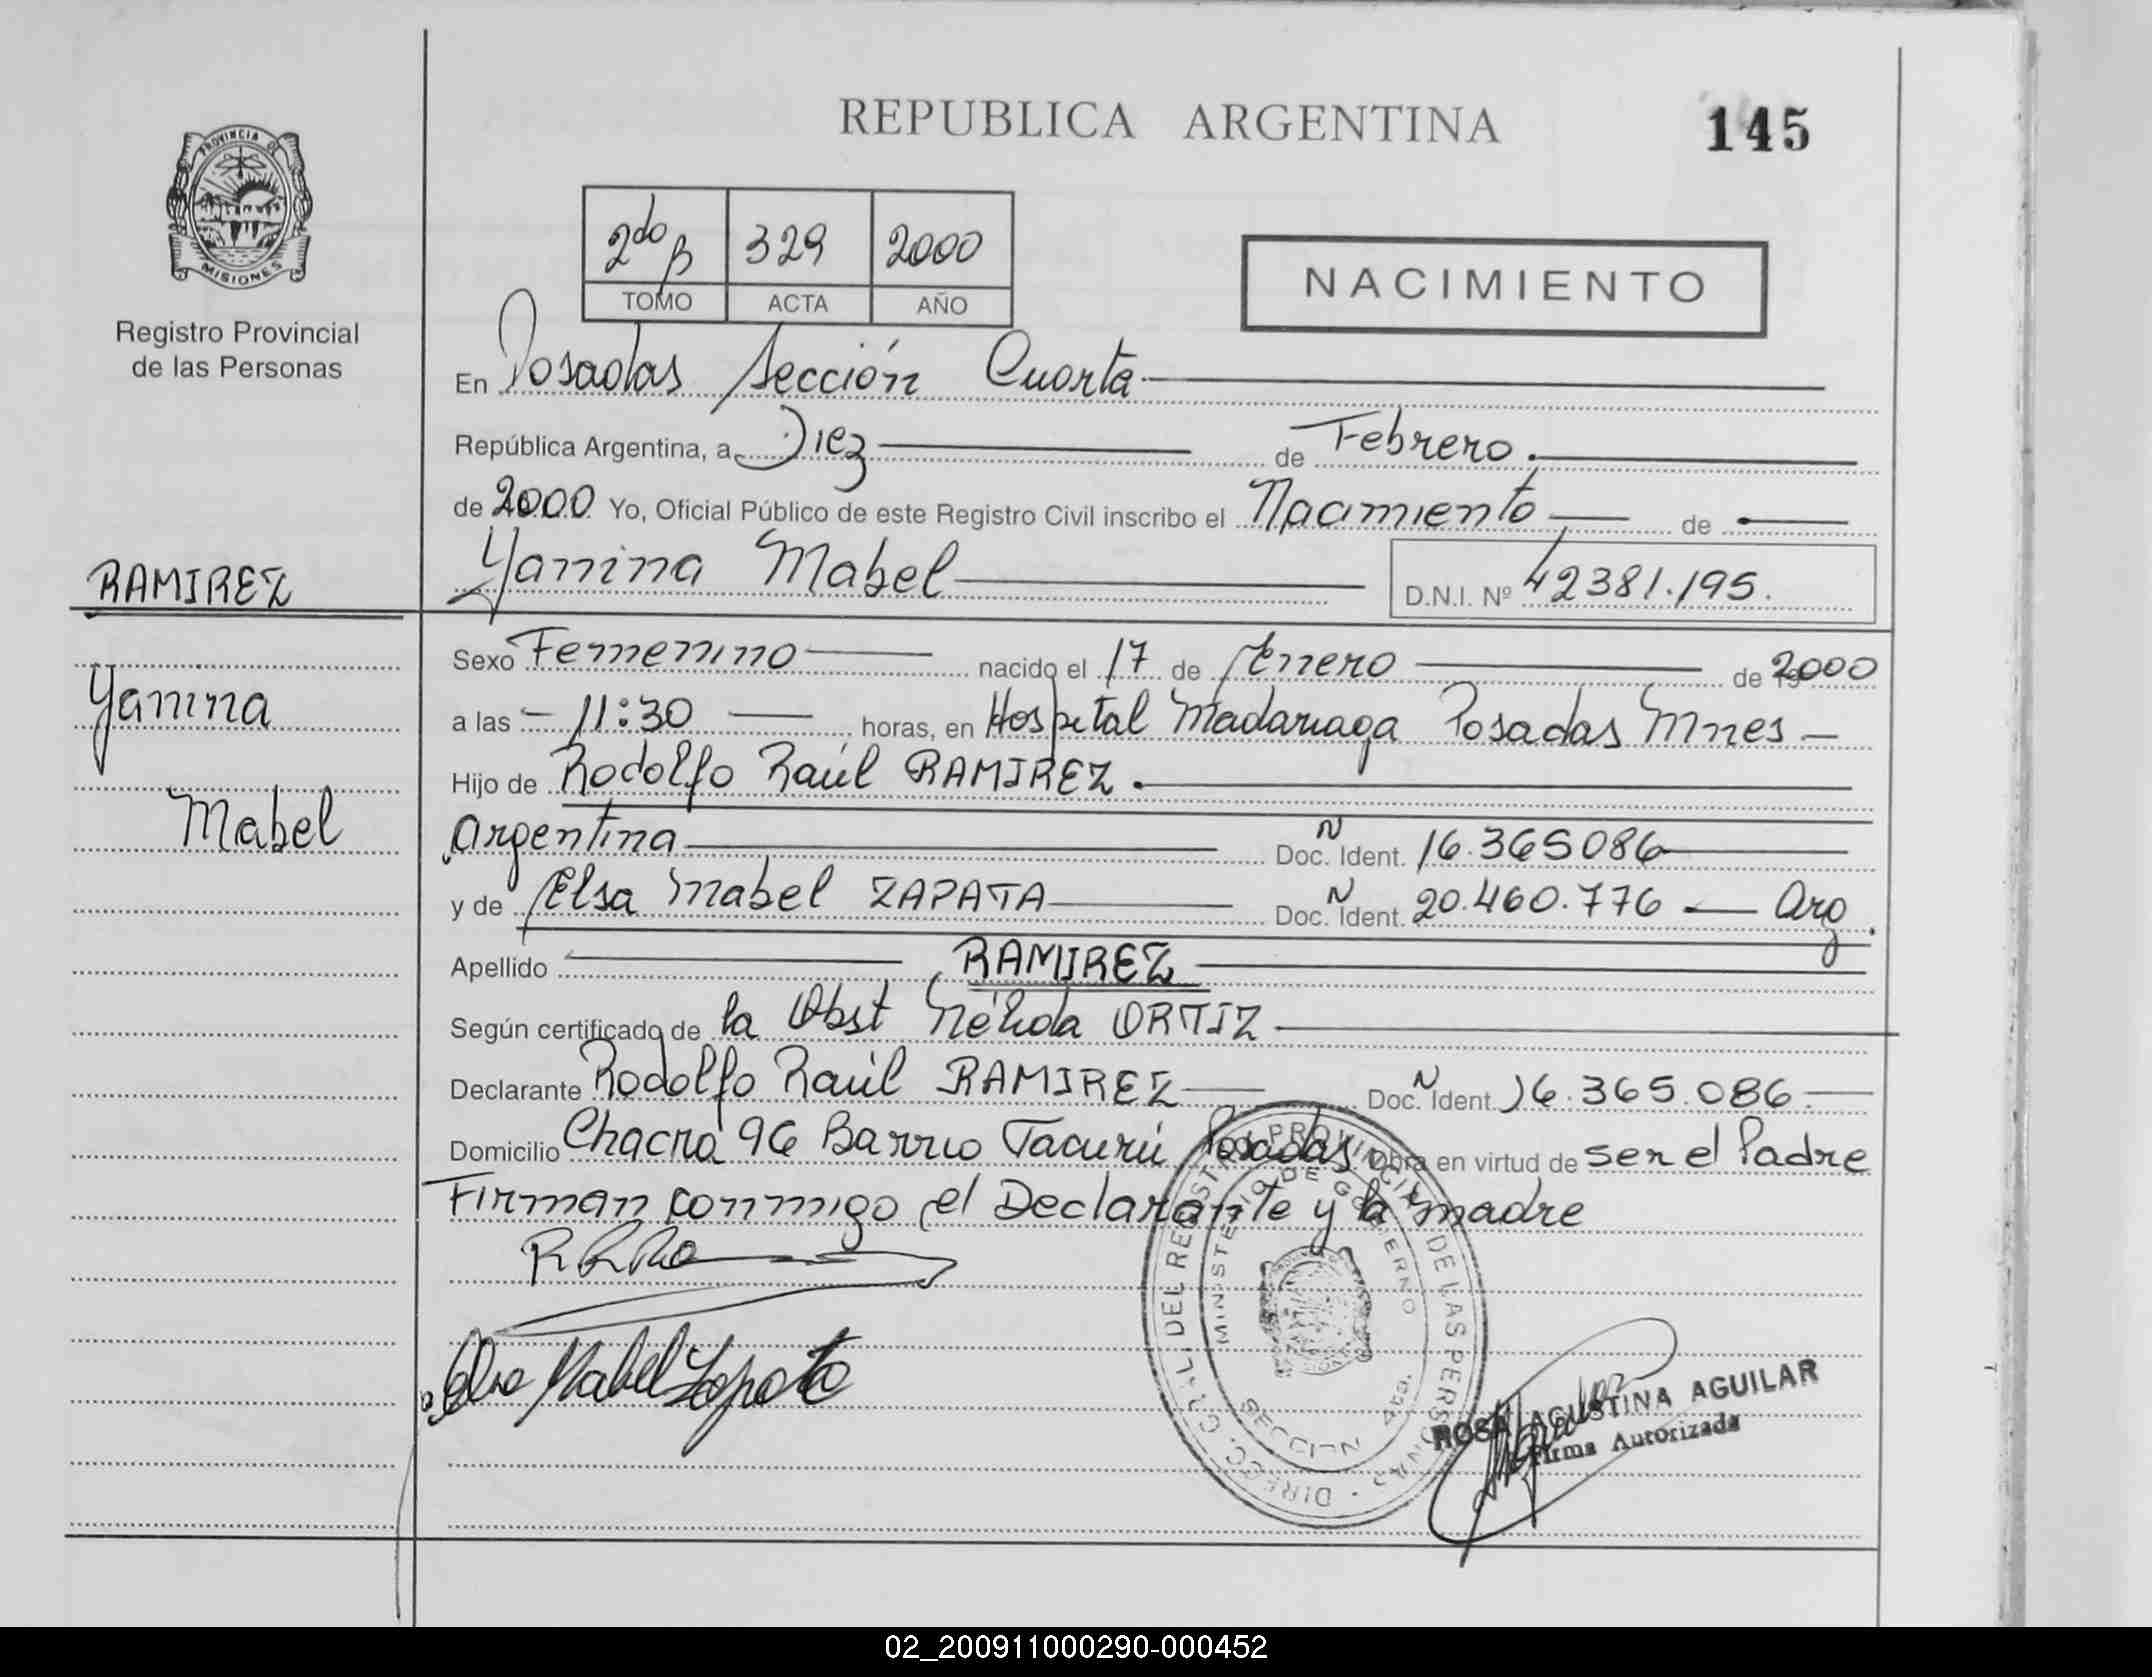 REPUBLICA ARGENTINA
145
PROVINCIA DE
MISIONES
Registro Provincial
de las Personas
2do B 329 2000
TOMO ACTA AÑO
NACIMIENTO
En Posadas Sección Cuarta
República Argentina, a Diez de Febrero.
de 2000 Yo, Oficial Público de este Registro Civil inscribo el Nacimiento de
Yanina Mabel D.N.I. Nº 42381.195.
RAMIREZ
Yanina
Mabel
Sexo Femenino nacido el 17 de Enero de 2000
a las - 11:30 horas, en Hospital Madariaga Posadas Mnes -
Hijo de Rodolfo Raúl RAMIREZ.
Argentina Doc. N Ident. 16.365086
y de Elsa Mabel ZAPATA Doc. N Ident. 20.460.776 - Arg.
Apellido RAMIREZ
Según certificado de la Obst Nélida ORTIZ
Declarante Rodolfo Raúl RAMIREZ Doc. N Ident. 16.365.086
Domicilio Chacra 96 Barrio Tacurú Posadas Obra en virtud de ser el Padre
Firman conmigo el Declarante y la madre
Elsa Mabel Zapata
DIRECC. CIVIL DEL REGISTRO PROVINCIAL DE LAS PERSONAS
MINISTERIO DE GOBIERNO
SECCION 4ta.
ROSA AGUSTINA AGUILAR
Firma Autorizada
02_200911000290-000452